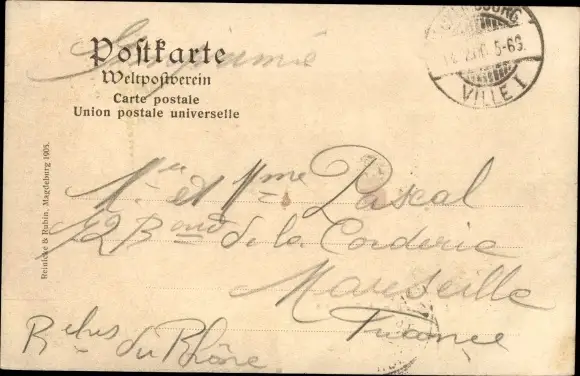 Postkarte
Weltpostverein
Carte postale
Union postale universelle
5-6S.
VILLE 1
Reinicke & Rubin, Magdeburg 1905.
Mr et Mme Pascal
Bard de la Corderie
Marseille
Bches du Rhône
France